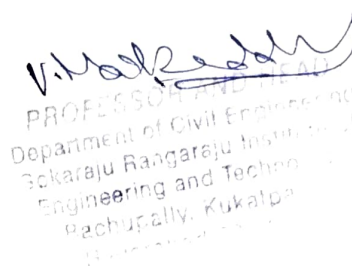 PROFESSOR AND HEAD
Department of Civil Engineering
Gokaraju Rangaraju Institute
Engineering and Techno
Bachupally, Kukatpa